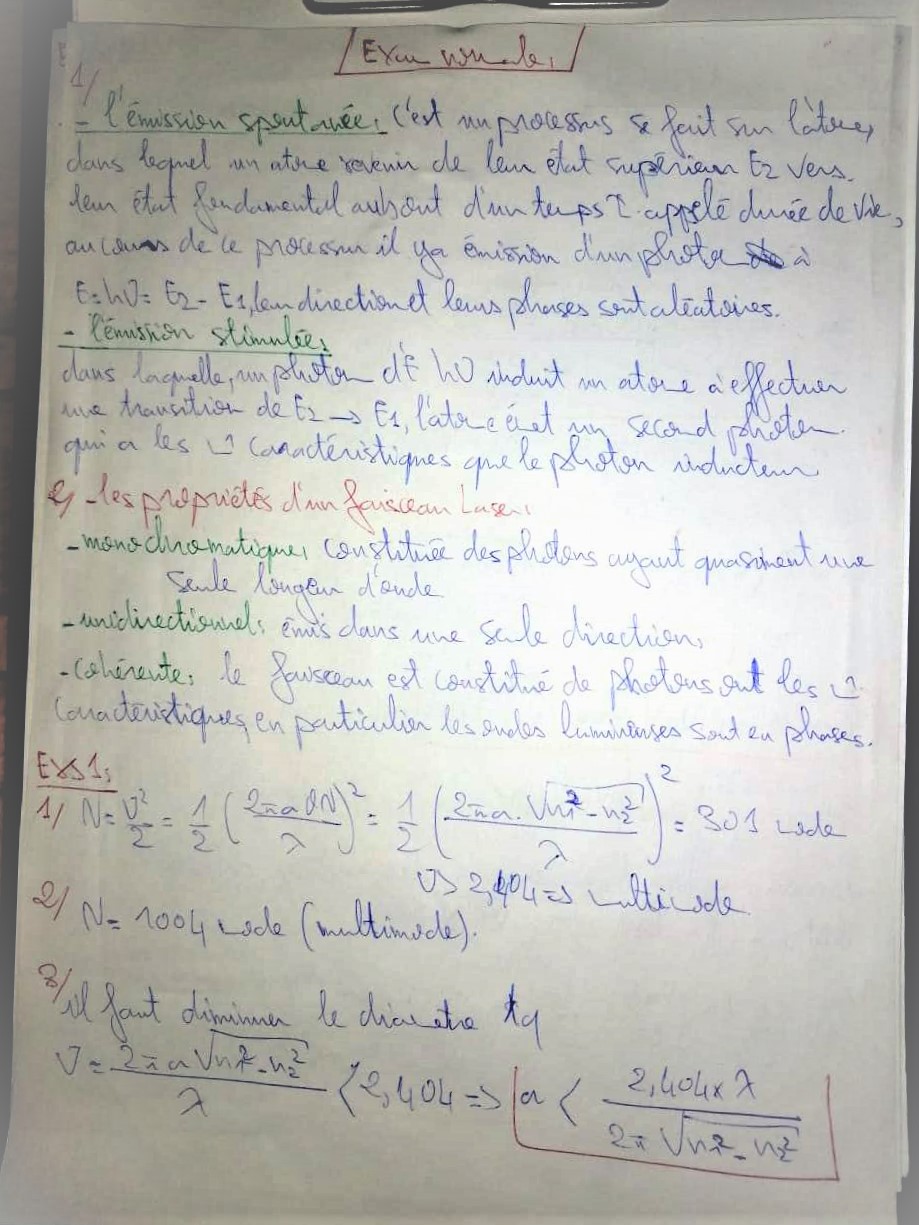 Exam normale:
1/
- l'émission spontanée: C'est un processus se fait sur l'atome,
dans lequel un atome revenir de leur état supérieur E2 vers
leur état fondamental aubout d'un temps τ appelé durée de vie,
au cours de ce processus il ya émission d'un photon à
E=hν= E2 - E1, leur direction et leurs phases sont aléatoires.
- l'émission stimulée:
dans laquelle, un photon d'E hν induit un atome à effectuer
une transition de E2 → E1, l'atome émet un second photon
qui a les caractéristiques que le photon inducteur
2) - les propriétés d'un faisceau Laser:
- monochromatique: constituée des photons ayant quasiment une
seule longeur d'onde
- unidirectionnel: émis dans une seule direction,
- cohérente: le faisceau est constitué de photons ont les
Caractéristiques, en particulier les ondes lumineuses sont en phases.
Exs1:
1/ N= V²/2 = 1/2 (2πa ON/λ)² = 1/2 (2πa. √(n1² - n2²)/λ)² = 301 mode
V > 2,404 => multimode
2/ N= 1004 mode (multimode).
3/ il faut diminuer le diametre tq
V = 2πa√(n1² - n2²)/λ < 2,404 => a < 2,404 x λ/2π √(n1² - n2²)